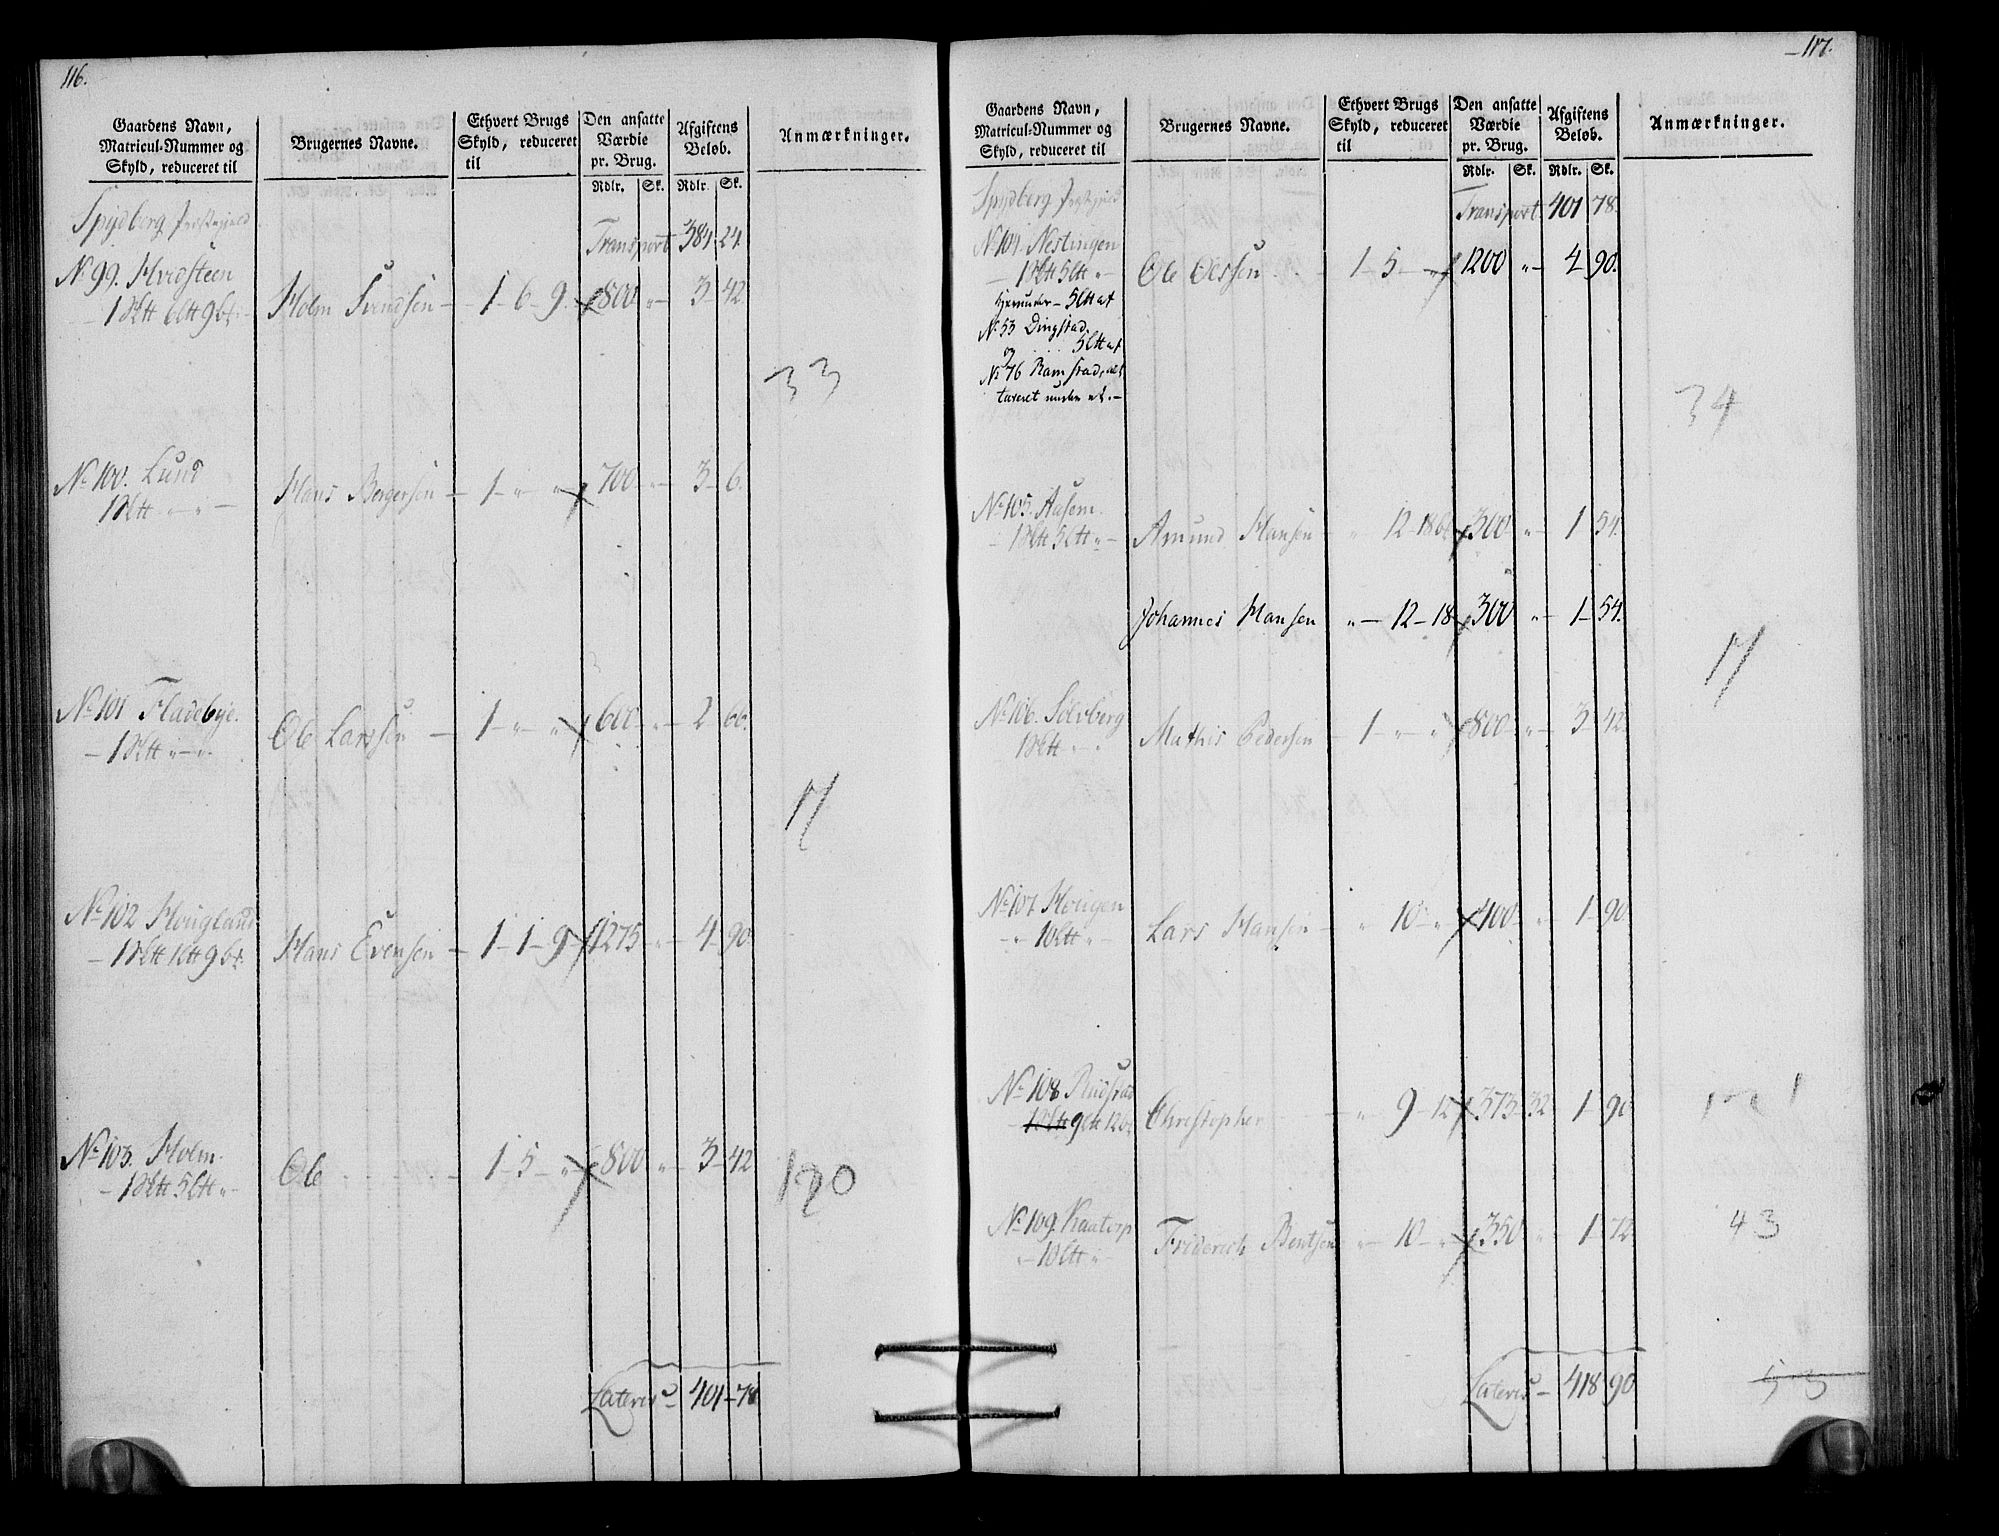 116.
Gaardens Navn, Matricul-Nummer og Skyld, reduceret til | Brugernes Navne. | Ethvert Brugs Skyld, reduceret til | Den ansatte Værdie pr. Brug. Rdlr. Sk. | Afgiftens Beløb. Rdlr. Sk. | Anmærkninger.
Spydberg Præstegield
Transport 384 24.
No 99. Hvidsteen
1 Sk℔ 6 L℔ 9 b. Holm Svendsen 1 - 6 - 9. 800 " 3 - 42.
33
No 100. Lund
1 Sk℔ " " Hans Bergersen 1 - " - " 700 " 3 - 6.
No 101 Fladebye.
1 Sk℔ " " Ole Larssen 1 - " - " 600 " 2 66.
17
No 102 Hougland
1 Sk℔ 1 L℔ 9 b. Hans Evensen 1 - 1 - 9 1275 " 4 - 90
No 103. Holm.
1 Sk℔ 5 L℔ " Ole 1 - 5 - " 800 " 3 - 42
Lateris 401 - 78
117.
Gaardens Navn, Matricul-Nummer og Skyld, reduceret til | Brugernes Navne. | Ethvert Brugs Skyld, reduceret til | Den ansatte Værdie pr. Brug. Rdlr. Sk. | Afgiftens Beløb. Rdlr. Sk. | Anmærkninger.
Spydberg Præstegield
Transport 401 78.
No 104. Nestingen
1 Sk℔ 5 L℔ " Ole Olssen 1 - 5 - " 1200 " 4 90.
herunder - 5 L℔ af
No 53 Dingstad.
og 5 L℔ af
No 76 Ramstad, alt
taxeret under et. -
34
No 105. Aasem.
1 Sk℔ 5 L℔ " Amund Hansen " 12 - 18 b. 300 " 1 54.
Johannes Hansen " 12 - 18 300 " 1 - 54.
17
No 106. Solvberg
1 Sk℔ " " Mathis Pedersen 1 " " 800 " 3 - 42.
No 107 Hougen
" 10 L℔ " Lars Hansen " 10 - " 400 " 1 - 90
No 108 Rudstad
9 L℔ 12 b. Christopher " 9 - 12 373 - 32 1 - 90
No 109. Kaatorp
" 10 L℔ " Friderich Bentsen " 10 - " 350 " 1 - 72
43
Lateris 418 90
53